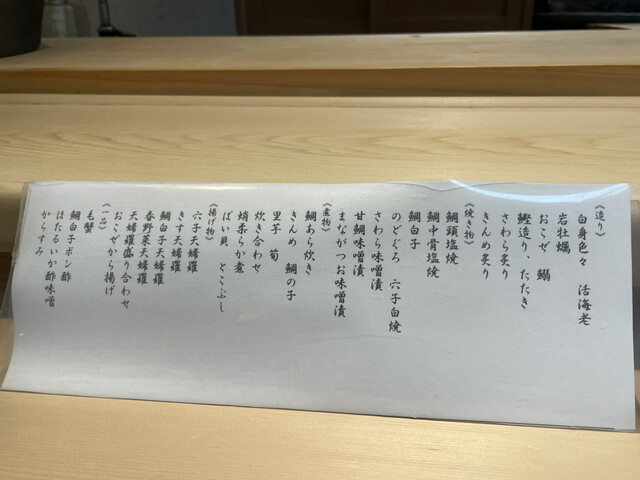 《造り》
白身色々 活海老
岩牡蠣
おこぜ 鰯
鰹造り、たたき
さわら炙り
きんめ炙り
《焼き物》
鯛頭塩焼
鯛中骨塩焼
鯛白子
のどぐろ 穴子白焼
さわら味噌漬
甘鯛味噌漬
まながつお味噌漬
《煮物》
鯛あら炊き
きんめ 鯛の子
里芋 筍
炊き合わせ
蛸柔らか煮
ばい貝 とこぶし
《揚げ物》
穴子天婦羅
きす天婦羅
鯛白子天婦羅
春野菜天婦羅
天婦羅盛り合わせ
おこぜから揚げ
《一品》
毛蟹
鯛白子ポン酢
ほたるいか酢味噌
からすみ